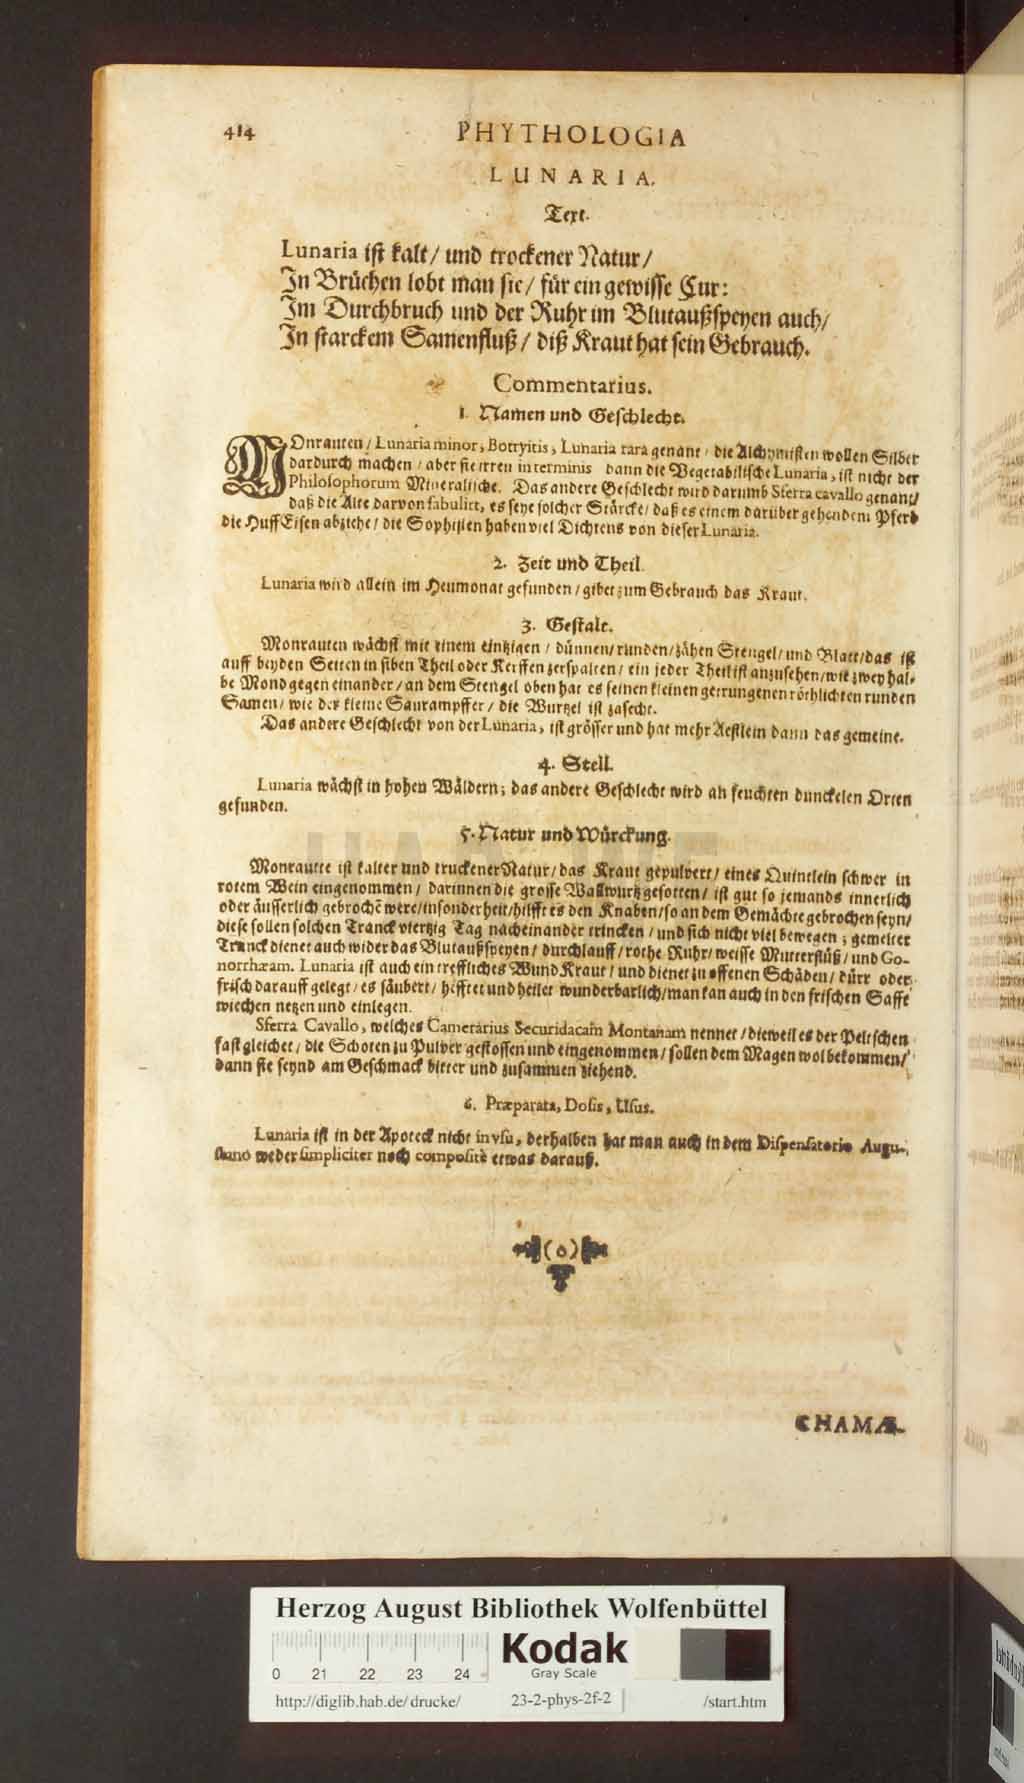 414 PHYTHOLOGIA
LUNARIA.
Text.
Lunaria ist kalt/ und trockener Natur/
In Brüchen lobt man sie/ für ein gewisse Cur:
Im Durchbruch und der Ruhr im Blutaußspeyen auch/
In starckem Samenfluß/ diß Kraut hat sein Gebrauch.
Commentarius.
1. Namen und Geschlecht.
MOnrauten/ Lunaria minor, Botryitis, Lunaria rara genant/ die Alchymisten wollen Silber
dardurch machen/ aber sie irren in terminis dann die Vegetabilische Lunaria, ist nicht der
Philosophorum Mineralische. Das andere Geschlecht wird darumb Sferra cavallo genant/
daß die Alte darvon fabulirt, es seye solcher Stärcke/ daß es einem darüber gehendem Pferd
die Huff Eisen abziehe/ die Sophisten haben viel Dichtens von dieser Lunaria.
2. Zeit und Theil.
Lunaria wird allein im Heumonat gefunden/ gibet zum Gebrauch das Kraut.
3. Gestalt.
Monrauten wächst mit einem eintzigen/ dünnen/ runden/ zähen Stengel/ und Blatt/ das ist
auff beyden Seiten in siben Theil oder Kerffen zerspalten/ ein jeder Theil ist anzusehen/ wie zwey hal-
be Mond gegen einander/ an dem Stengel oben hat es seinen kleinen getrungenen röthlichten runden
Samen/ wie der kleine Saurampffer/ die Wurtzel ist zasecht.
Das andere Geschlecht von der Lunaria, ist grösser und hat mehr Aestlein dann das gemeine.
4. Stell.
Lunaria wächst in hohen Wäldern; das andere Geschlecht wird an feuchten dunckelen Orten
gefunden.
5. Natur und Würckung.
Monrautte ist kalter und truckener Natur/ das Kraut gepulvert/ eines Quintlein schwer in
rotem Wein eingenommen/ darinnen die grosse Wallwurtz gesotten/ ist gut so jemands innerlich
oder äusserlich gebrochẽ were/ insonderheit/ hilfft es den Knaben/ so an dem Gemächte gebrochen seyn/
diese sollen solchen Tranck viertzig Tag nacheinander trincken/ und sich nicht viel bewegen; gemelter
Tranck dienet auch wider das Blutaußspeyen/ durchlauff/ rothe Ruhr/ weisse Mutterflüß/ und Go-
norrhæam. Lunaria ist auch ein treffliches Wund Kraut/ und dienet zu offenen Schäden/ dürr oder
frisch darauff gelegt/ es säubert/ hefftet und heilet wunderbarlich/ man kan auch in den frischen Safft
wiechen netzen und einlegen.
Sferra Cavallo, welches Camerarius Securidacam Montanam nennet/ dieweil es der Peltschen
fast gleichet/ die Schoten zu Pulver gestossen und eingenommen/ sollen dem Magen wol bekommen/
dann sie seynd am Geschmack bitter und zusammen ziehend.
6. Præparata, Dosis, Usus.
Lunaria ist in der Apoteck nicht in vsu, derhalben hat man auch in dem Dispensatorio Augu-
stano weder simpliciter noch compositè etwas darauß.
(o)
CHAMÆ-
Herzog August Bibliothek Wolfenbüttel
Kodak
Gray Scale
0 21 22 23 24
http://diglib.hab.de/drucke/ 23-2-phys-2f-2 /start.htm